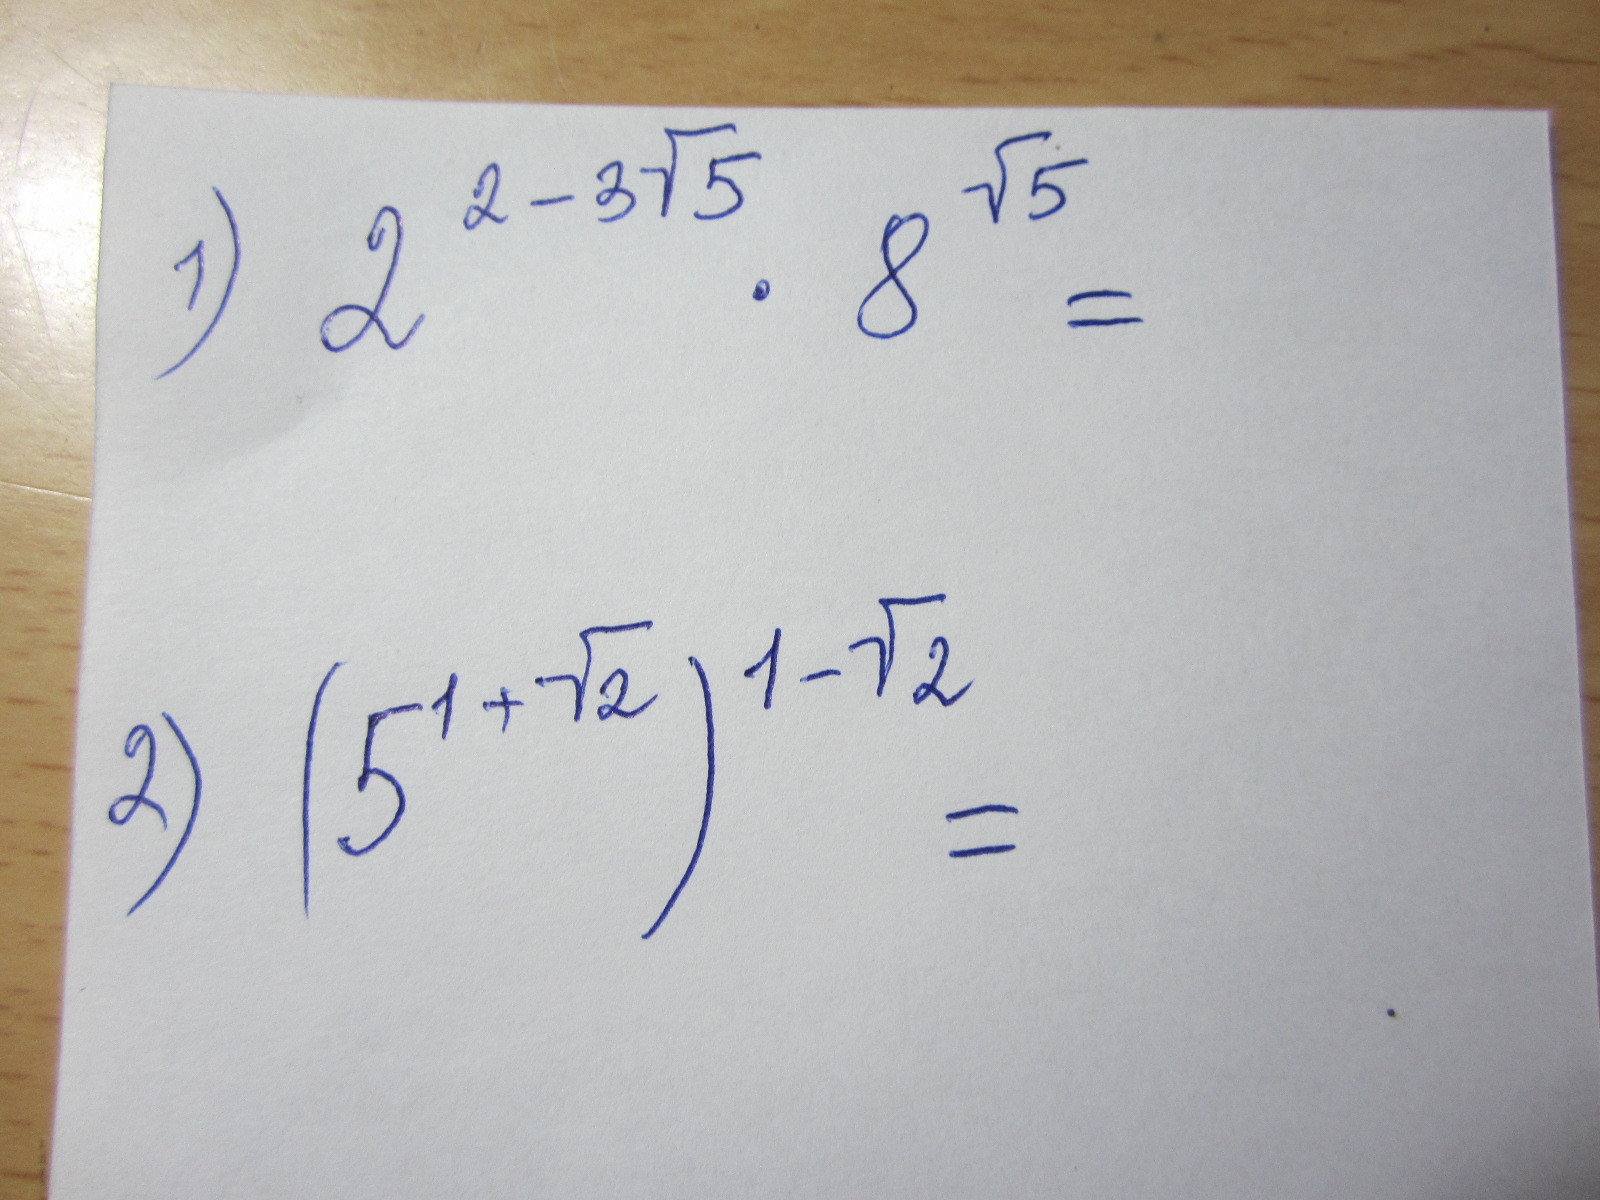 1) 2^{2-3√5} · 8^{√5} =
2) (5^{1+√2})^{1-√2} =